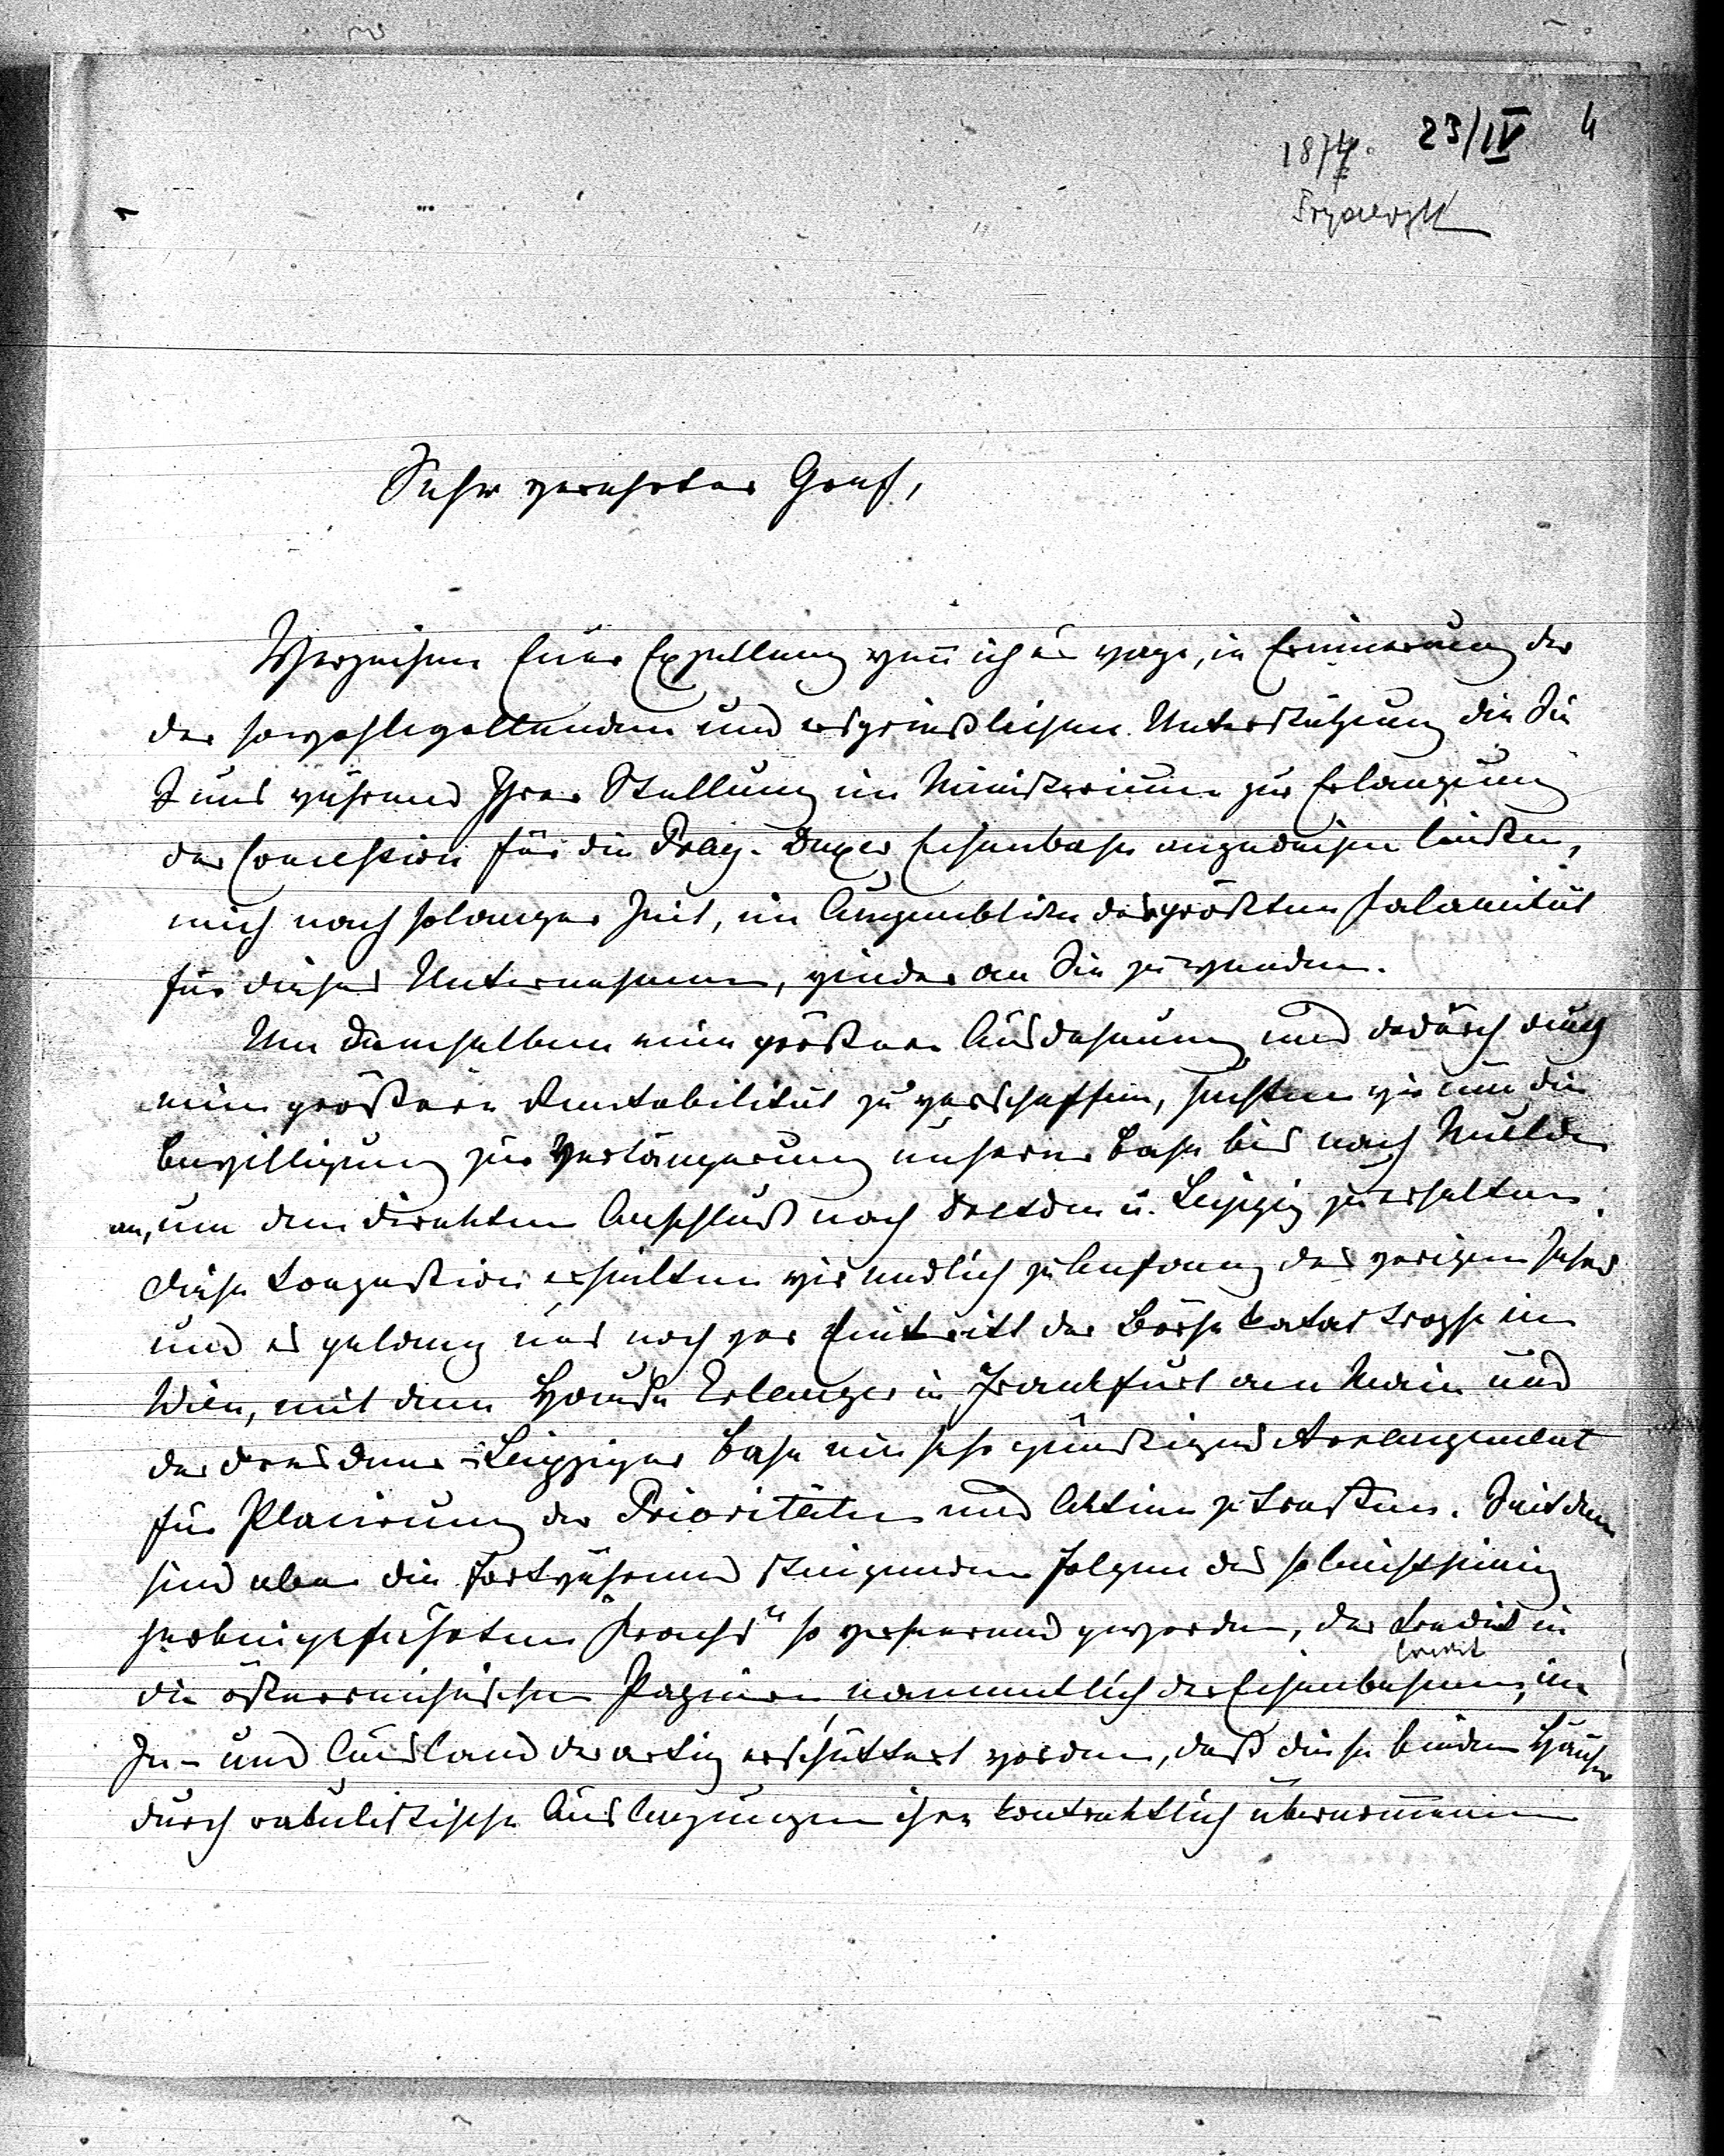 1874. 23/IV 4
Sehr verehrter Graf,
Verzeihen Euer Exzellenz wenn ich es wage, in Erinnerung der
der so wohlwollenden und ersprießlichen Unterstützung die Sie
uns während Ihrer Stellung im Ministerium zur Erlangung
der Concession für die Prag-Duxer Eisenbahn angedeihen ließen,
mich nach so langer Zeit, im Augenblicke der größten Calamität
für dieses Unternehmen, wieder an Sie zu wenden.
Um demselben eine größere Ausdehnung und dadurch auch
eine größere Rentabilität zu verschaffen, suchten wir um die
Bewilligung zur Verlängerung unserer Bahn bis nach Mulde
an, um den direkten Anschluß nach Dresden u. Leipzig zu erhalten.
diese Conzession erhielten wir endlich zu Anfang des vorigen Jahres
und es gelang uns noch vor Eintritt der Börse katastrophe in
Wien, mit dem Hause Erlanger in Frankfurt am Main und
der Dresdener-Leipziger Bahn ein sehr günstiges Arrangement
für Placirung der Prioritäten und Aktien zu treffen. Seitdem
sind aber die fortwährend steigenden Folgen des so leichtsinnig
herbeigeführten „Krachs" so verheerend geworden, der Kredit in
Credit
die österreichischen Papiere, namentlich der Eisenbahnen, im
In- und Ausland derartig erschüttert worden, daß diese beiden Häuser
durch rabulistische Auslegungen ihrer kontraktlich übernommenen